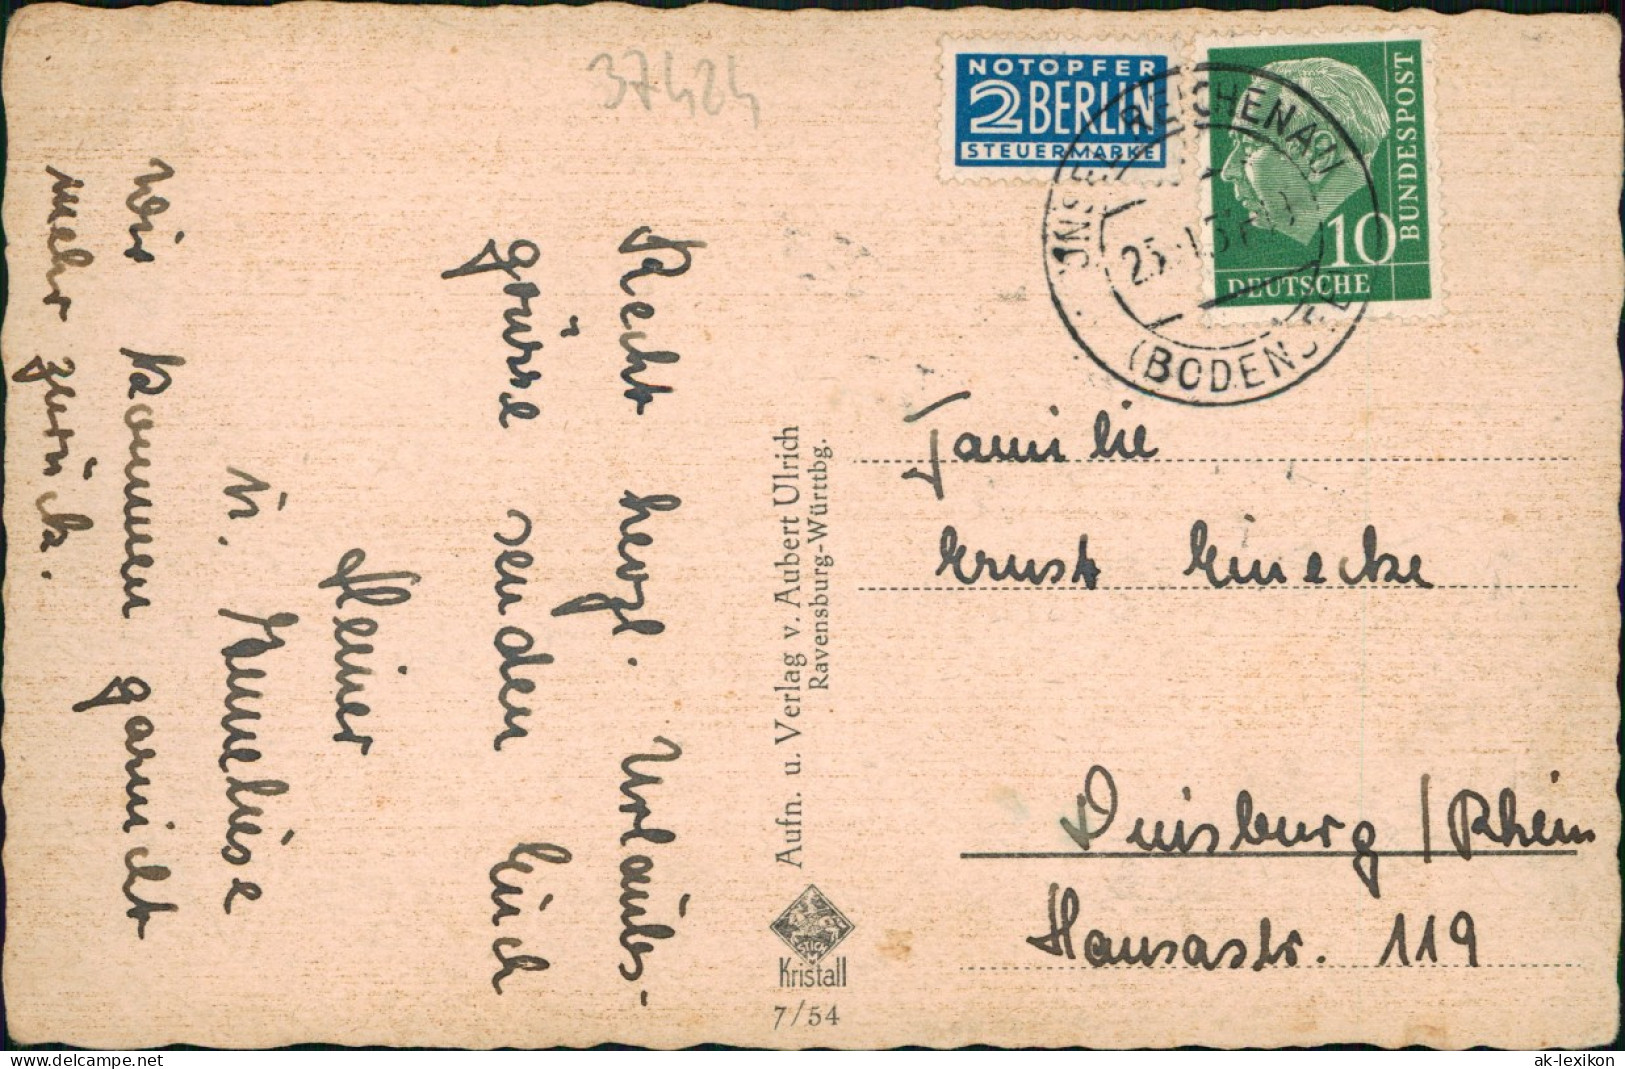 37424
NOTOPFER
2 BERLIN
STEUERMARKE
DEUTSCHE
BUNDESPOST
10
INSEL REICHENAU
(BODENSEE)
Recht herzl. Urlaubs-
grüsse senden Euch
Heiner
u. Anneliese
Wir kommen garnicht
mehr zurück.
Aufn. u. Verlag v. Aubert Ulrich
Ravensburg-Württbg.
STICH
Kristall
7/54
Familie
Ernst
Duisburg / Rhein
Hansastr. 119
ak-lexikon.de
ak-lexikon